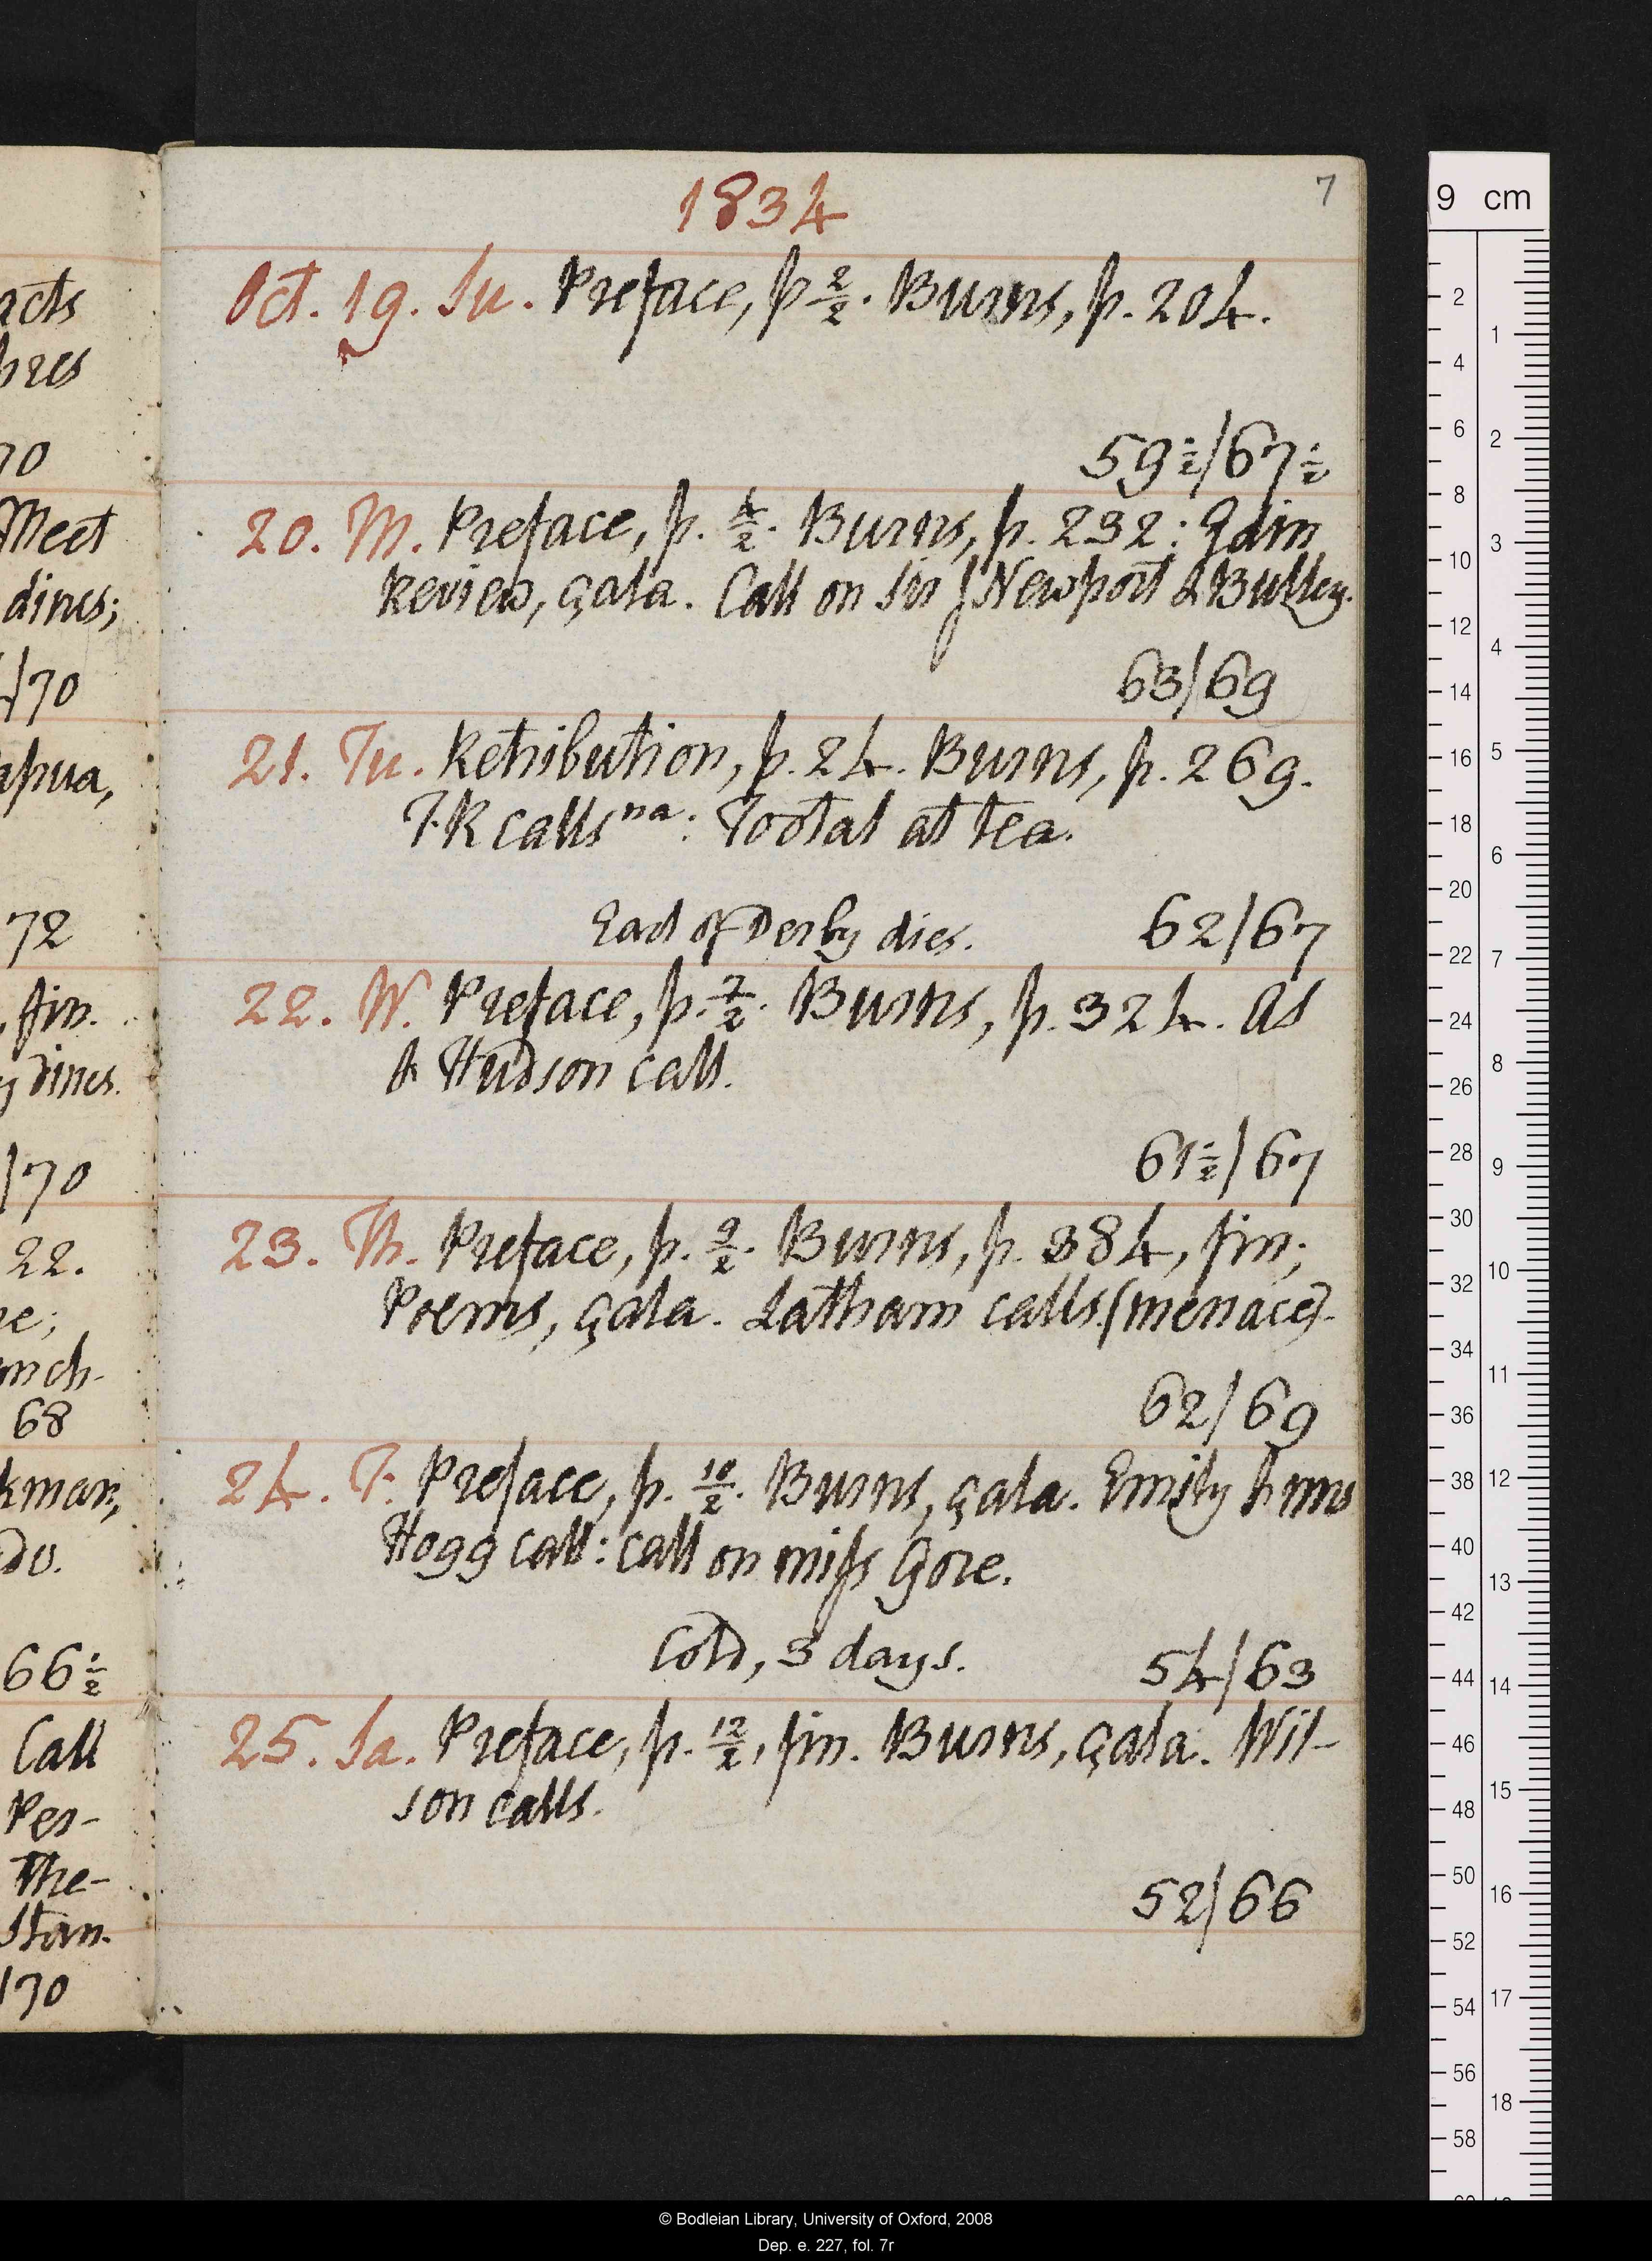 acts
hres
70
Meet
dines;
/70
apua,
72
, fin.
y dines.
/70
22.
re;
nch-
68
kman,
do.
66 1/2
Call
Per-
The-
Stan-
/70
1834
7
Oct. 19. Su. Preface, p 2/2. Burns, p. 204.
59 1/2/67 1/2
20. M. Preface, p. 4/2. Burns, p. 232: Edin
Review, çala. Call on Sir J Newport & Bulley.
63/69
21. Tu. Retribution, p. 24. Burns, p. 269.
F. K calls na: Tootal at tea.
Earl of Derby dies. 62/67
22. W. Preface, p. 7/2. Burns, p. 324. AS
& Hudson call.
61 1/2/67
23. Th. Preface, p. 9/2. Burns, p. 384, fin;
Poems, çala. Latham calls (menace).
62/69
24. F. Preface, p. 10/2. Burns, çala. Emily & mrs
Hogg call: call on miss Gore.
Cold, 3 days. 54/63
25. Sa. Preface, p. 12/2, fin. Burns, çala. Wil-
son calls.
52/66
9 cm
2
4
6
8
10
12
14
16
18
20
22
24
26
28
30
32
34
36
38
40
42
44
46
48
50
52
54
56
58
1
2
3
4
5
6
7
8
9
10
11
12
13
14
15
16
17
18
© Bodleian Library, University of Oxford, 2008
Dep. e. 227, fol. 7r